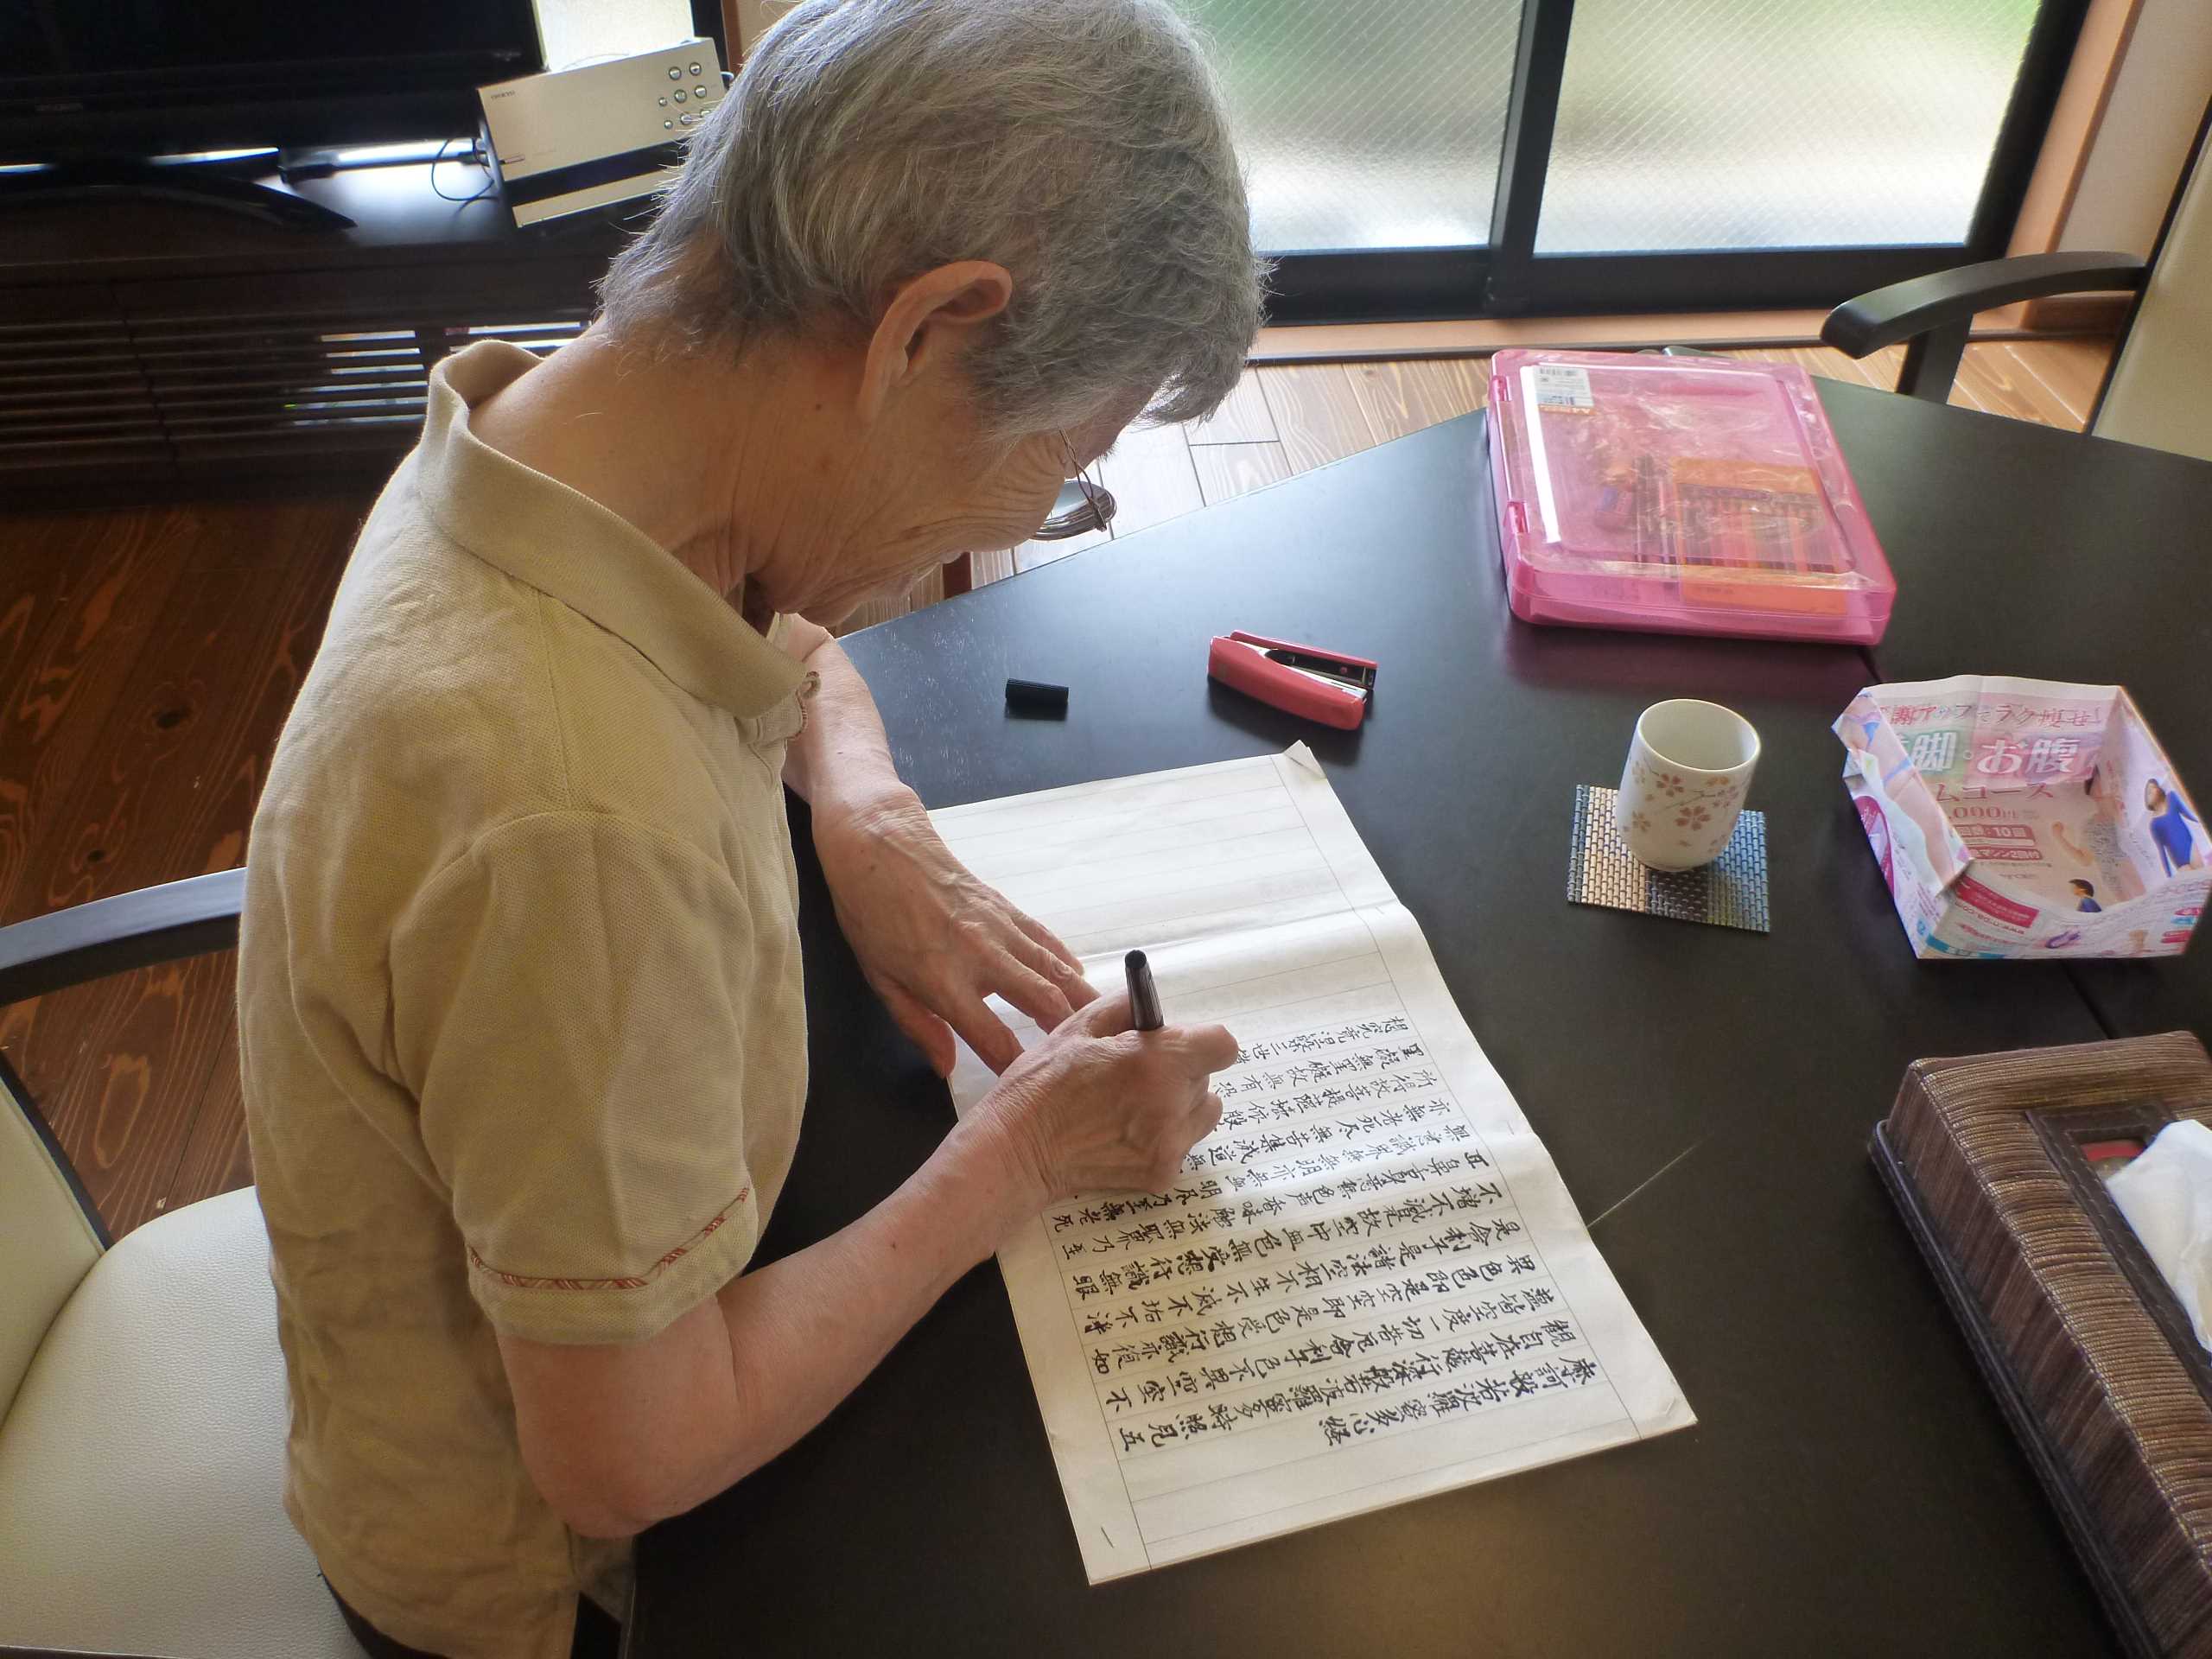 摩訶般若波羅蜜多心経
観自在菩薩行深般若波羅蜜多時照見五
蘊皆空度一切苦厄舎利子色不異空空不
異色色即是空空即是色受想行識亦復如
是舎利子是諸法空相不生不滅不垢不浄
不増不減是故空中無色無受想行識無眼
耳鼻舌身意無色声香味触法無眼界乃至
無意識界無無明亦無無明尽乃至無老死
亦無老死尽無苦集滅道無
所得故菩提薩埵依般
罣礙無罣礙故無有恐
想究竟涅槃三世
謝アップでラク痩せ!
脚・お腹
ムコース
,000円
10回
ONKYO